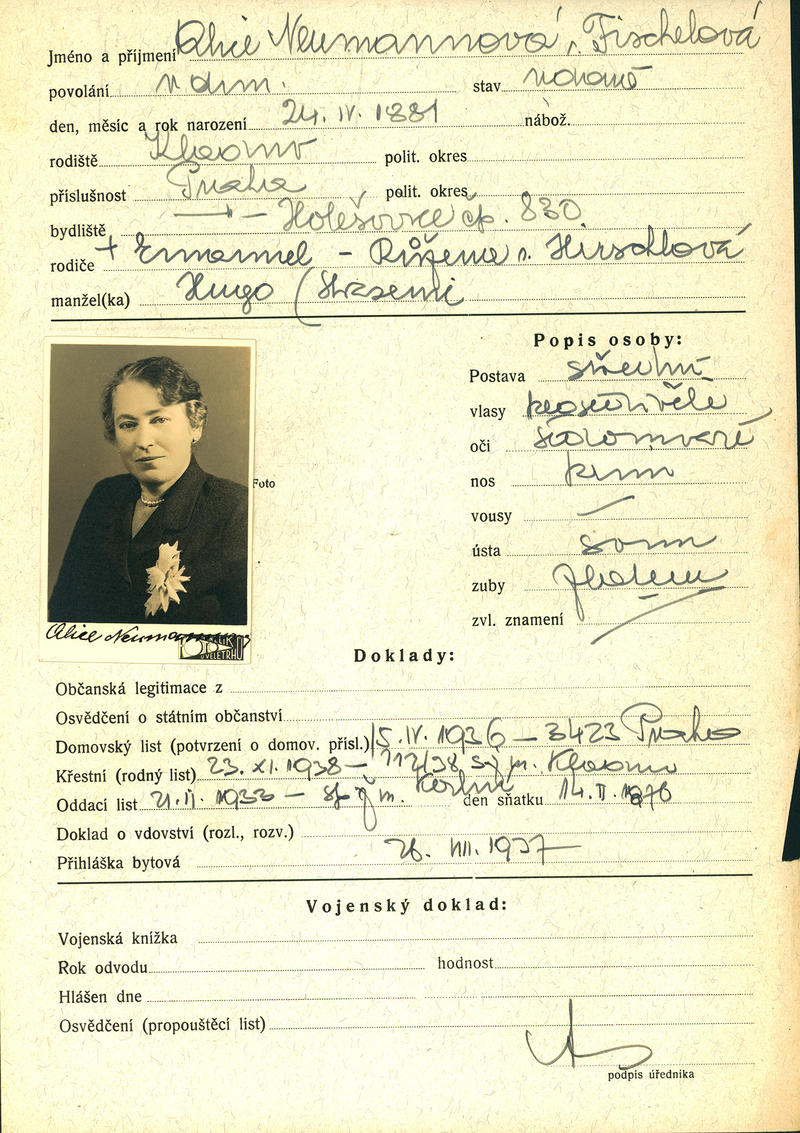 Jméno a příjmení Alice Neumannová r. Fischelová
povolání v dom. stav vdaná
den, měsíc a rok narození 24. IV. 1881 nábož.
rodiště Kladno polit. okres
příslušnost Praha polit. okres
bydliště — " — Holešovice čp. 830
rodiče + Emanuel - Růžena r. Hirschlová
manžel(ka) Hugo
Popis osoby:
Postava střední
vlasy prošedivělé
oči
nos
vousy
ústa
zuby
zvl. znamení
Foto
Alice Neumannová
Doklady:
Občanská legitimace z
Osvědčení o státním občanství
Domovský list (potvrzení o domov. přísl.) 15. IV. 1936 — 3423 Praha
Křestní (rodný list) 23. XI. 1938 — 112/38 Kladno
Oddací list 21. II. 1933 — den sňatku 14. II.
Doklad o vdovství (rozl., rozv.)
Přihláška bytová 26. VII. 1937
Vojenský doklad:
Vojenská knížka
Rok odvodu hodnost
Hlášen dne
Osvědčení (propouštěcí list)
podpis úředníka